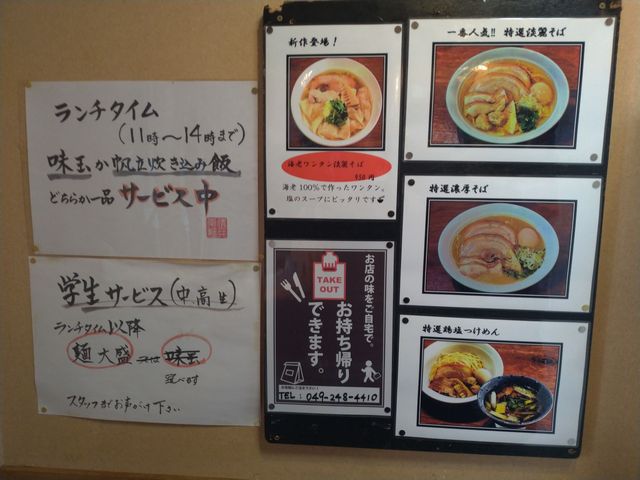 ランチタイム
(11時～14時まで)
味玉か帆立炊き込み飯
どちらか一品 サービス中
学生サービス(中、高生)
ランチタイム以降
麺大盛 又は 味玉
選べます
スタッフがお声がけ下さい
新作登場!
海老ワンタン淡麗そば
950円
海老100%で作ったワンタン。
塩のスープにピッタリです
TAKE
OUT
お店の味をご自宅で。
お持ち帰り
できます。
TEL: 049-248-4410
一番人気!! 特選淡麗そば
特選濃厚そば
特選鶏塩つけめん